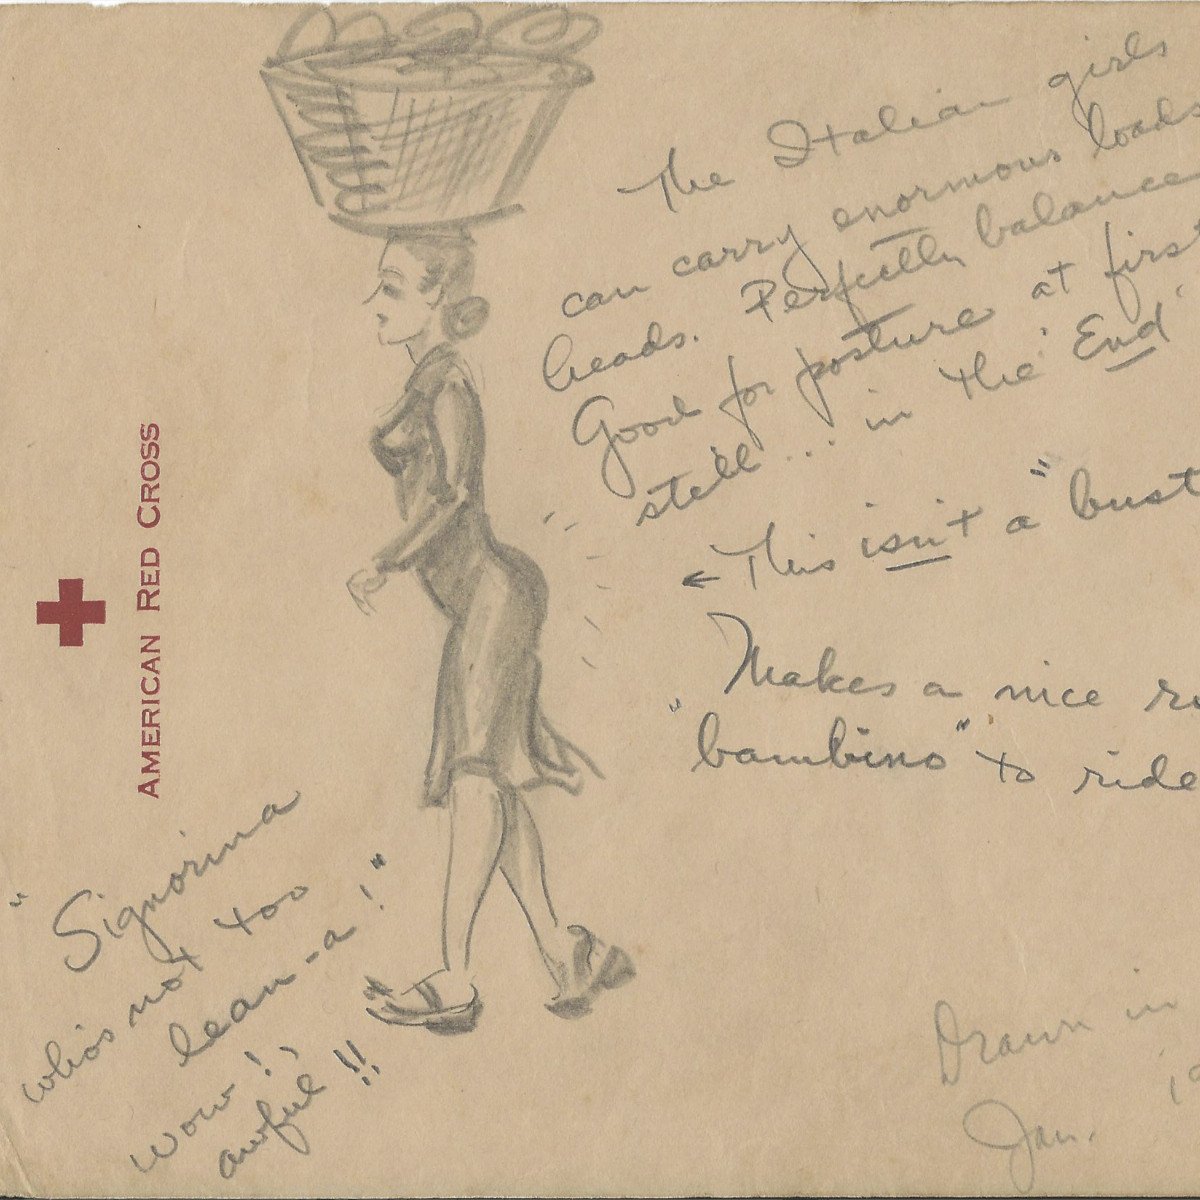 The Italian girls
can carry enormous loads
heads. Perfectly balance
Good for posture at first
still ... in the "End"
← This isn't a "bust
Makes a nice
"bambino" to ride
AMERICAN RED CROSS
"Signorina
who's not too
lean-a!"
Wow!,
awful!!
Drawn in
Jan. 19